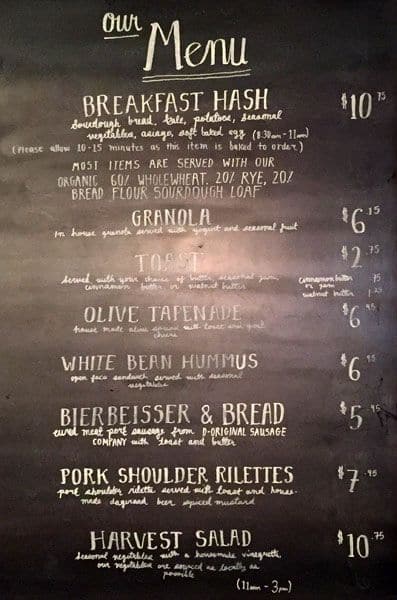 our
Menu
BREAKFAST HASH $10.75
Sourdough bread, kale, potatoes, seasonal
vegetables, asiago, soft baked egg (8:30am-11am)
(Please allow 10-15 minutes as this item is baked to order)
MOST ITEMS ARE SERVED WITH OUR
ORGANIC 60% WHOLEWHEAT, 20% RYE, 20%
BREAD FLOUR SOURDOUGH LOAF
GRANOLA $6.15
in house granola served with yogurt and seasonal fruit
TOAST $2.75
served with your choice of butter, seasonal jam,
cinnamon butter or walnut butter
cinnamon butter .75
or jam
walnut butter 1.25
OLIVE TAPENADE $6.95
house made olive spread with toast and goat
cheese
WHITE BEAN HUMMUS $6.95
open face sandwich served with seasonal
vegetables
BIERBEISSER & BREAD $5.95
cured meat pork sausage from D-ORIGINAL SAUSAGE
COMPANY with toast and butter
PORK SHOULDER RILETTES $7.95
pork shoulder rilette served with toast and house-
made dageraad beer spiced mustard
HARVEST SALAD $10.75
Seasonal vegetables with a housemade vinegrette,
our vegetables are sourced as locally as
possible
(11am - 3pm)